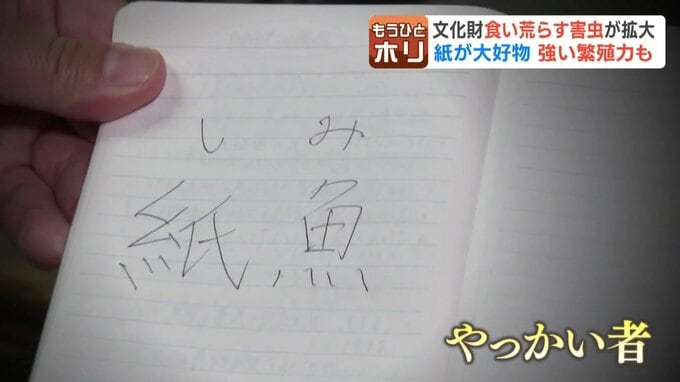 もうひと
ホリ
文化財食い荒らす害虫が拡大
紙が大好物 強い繁殖力も
しみ
紙魚
やっかい者